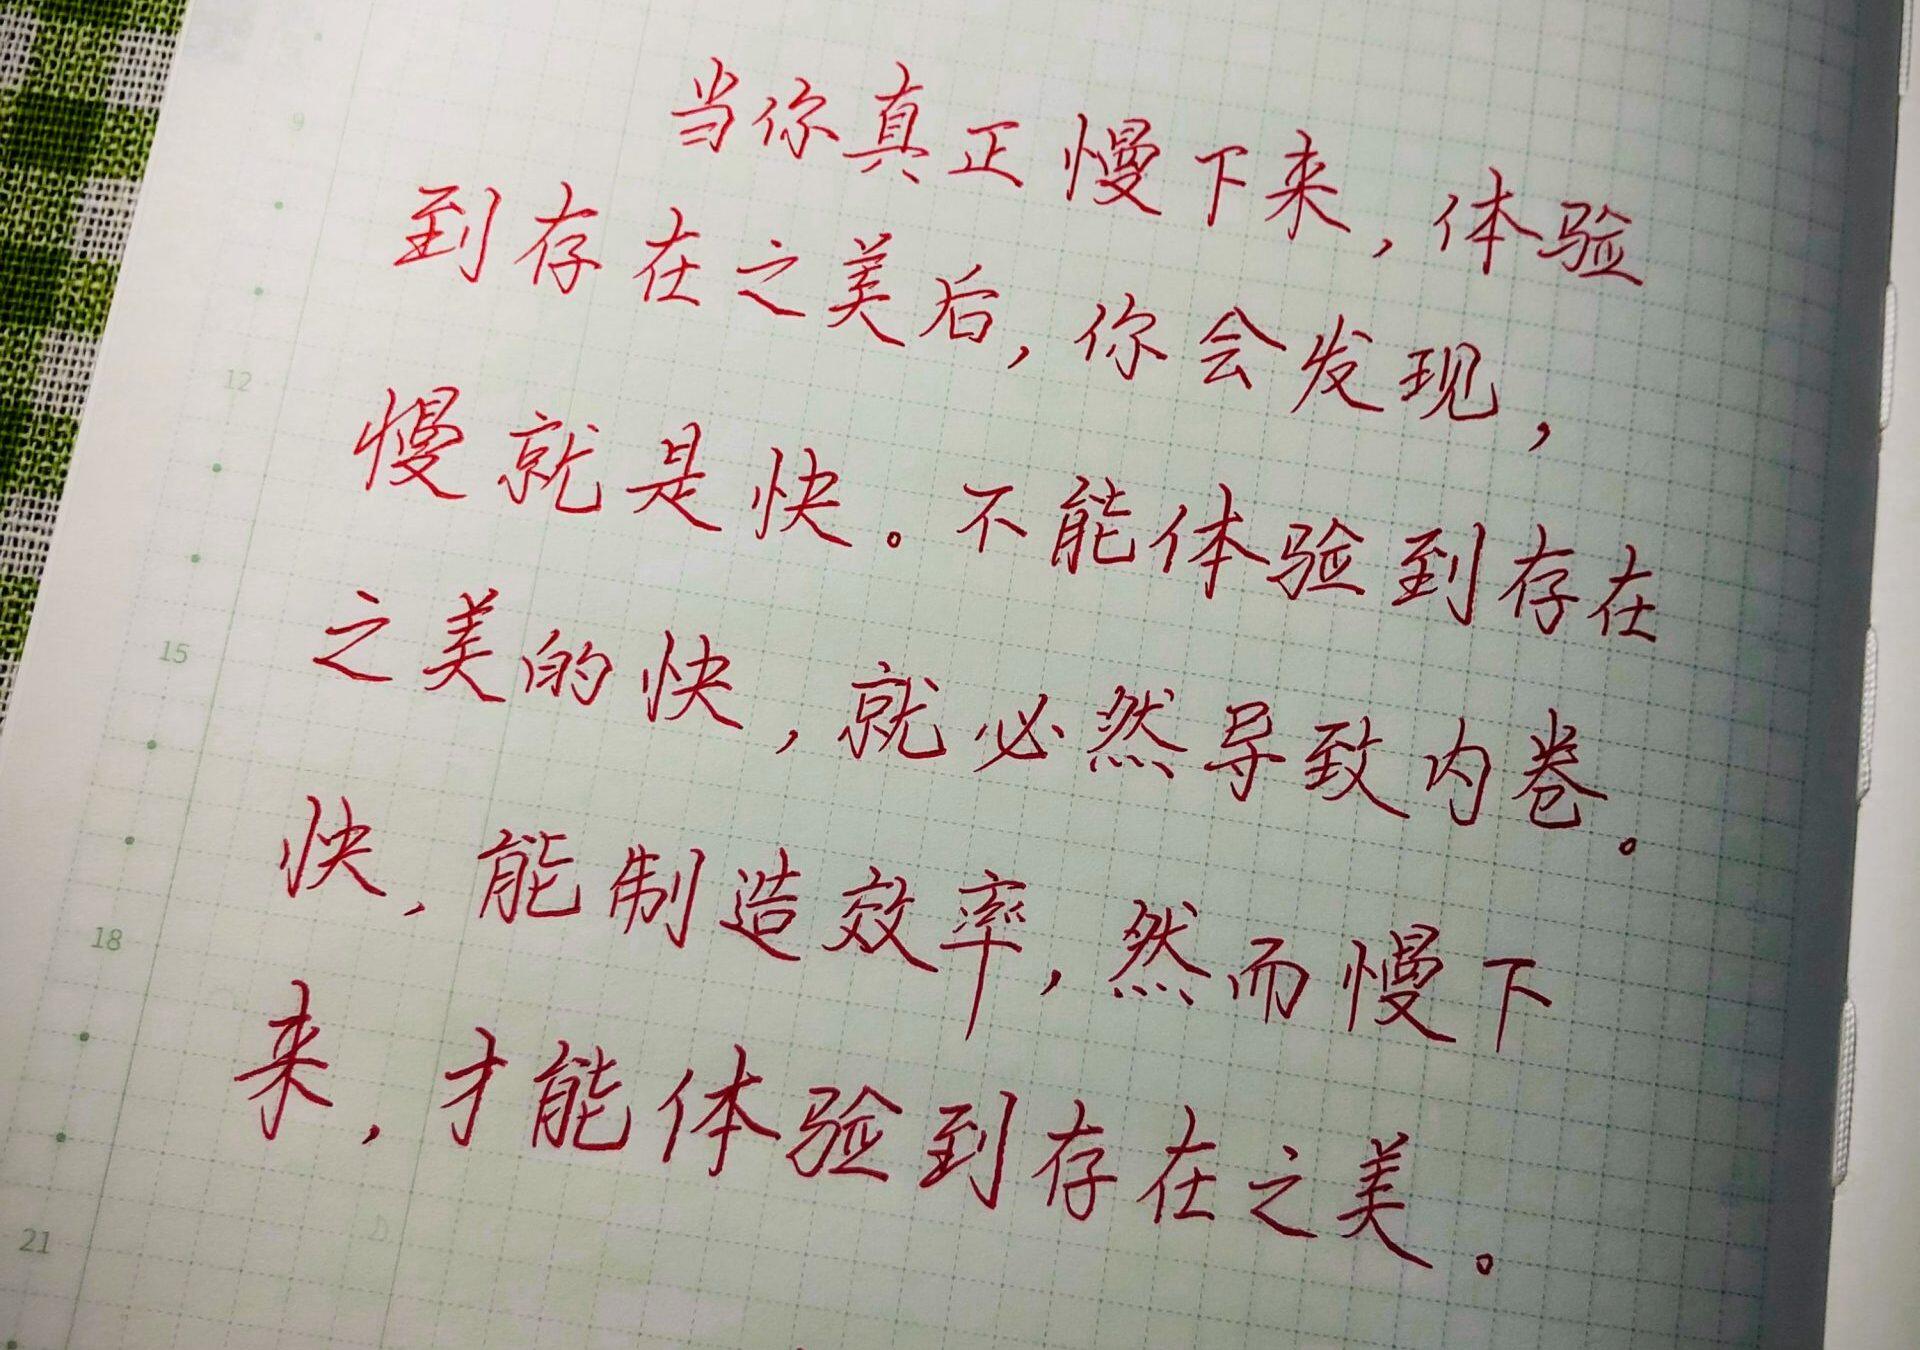 当你真正慢下来，体验
到存在之美后，你会发现，
慢就是快。不能体验到存在
之美的快，就必然导致内卷。
快，能制造效率，然而慢下
来，才能体验到存在之美。
9
12
15
18
21